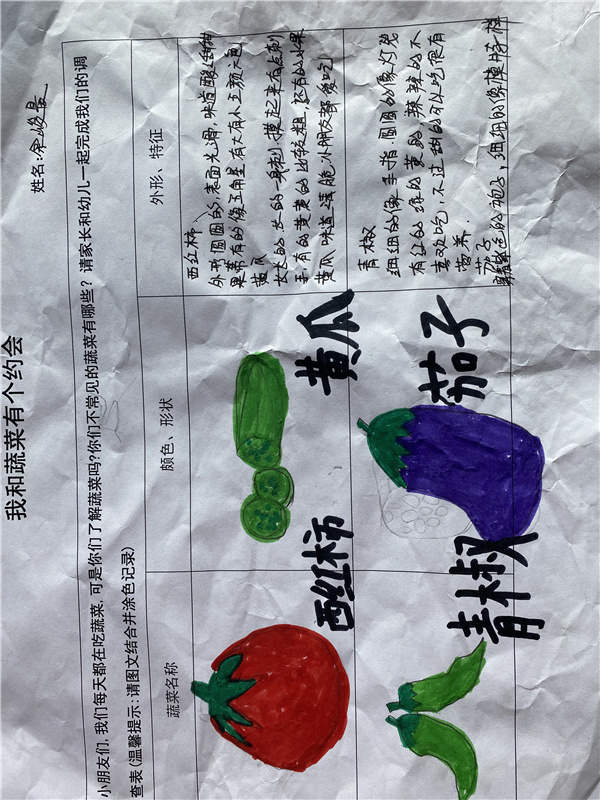 我和蔬菜有个约会
姓名:余峻
小朋友们,我们每天都在吃蔬菜,可是你们了解蔬菜吗?你们不常见的蔬菜有哪些?请家长和幼儿一起完成我们的调
查表(温馨提示:请图文结合并涂色记录)
蔬菜名称
颇色、形状
外形、特征
西红柿
黄瓜
西红柿
外形圆圆的,表面光滑,味道酸甜
果蒂有的像五角星,有大有小,五颜六色
黄瓜
长长的 长的一身刺,摸起来有点刺
手,有的黄黄的比较粗,还有的水果
黄瓜,味道清脆,小朋友都爱吃
青椒
茄子
青椒
细细的像手指,圆圆的像灯笼
有红的 绿的 黄的 辣辣的不
喜欢吃,不过甜的可以吃很有
营养.
茄子
紫色的袍子,细细的像模特样